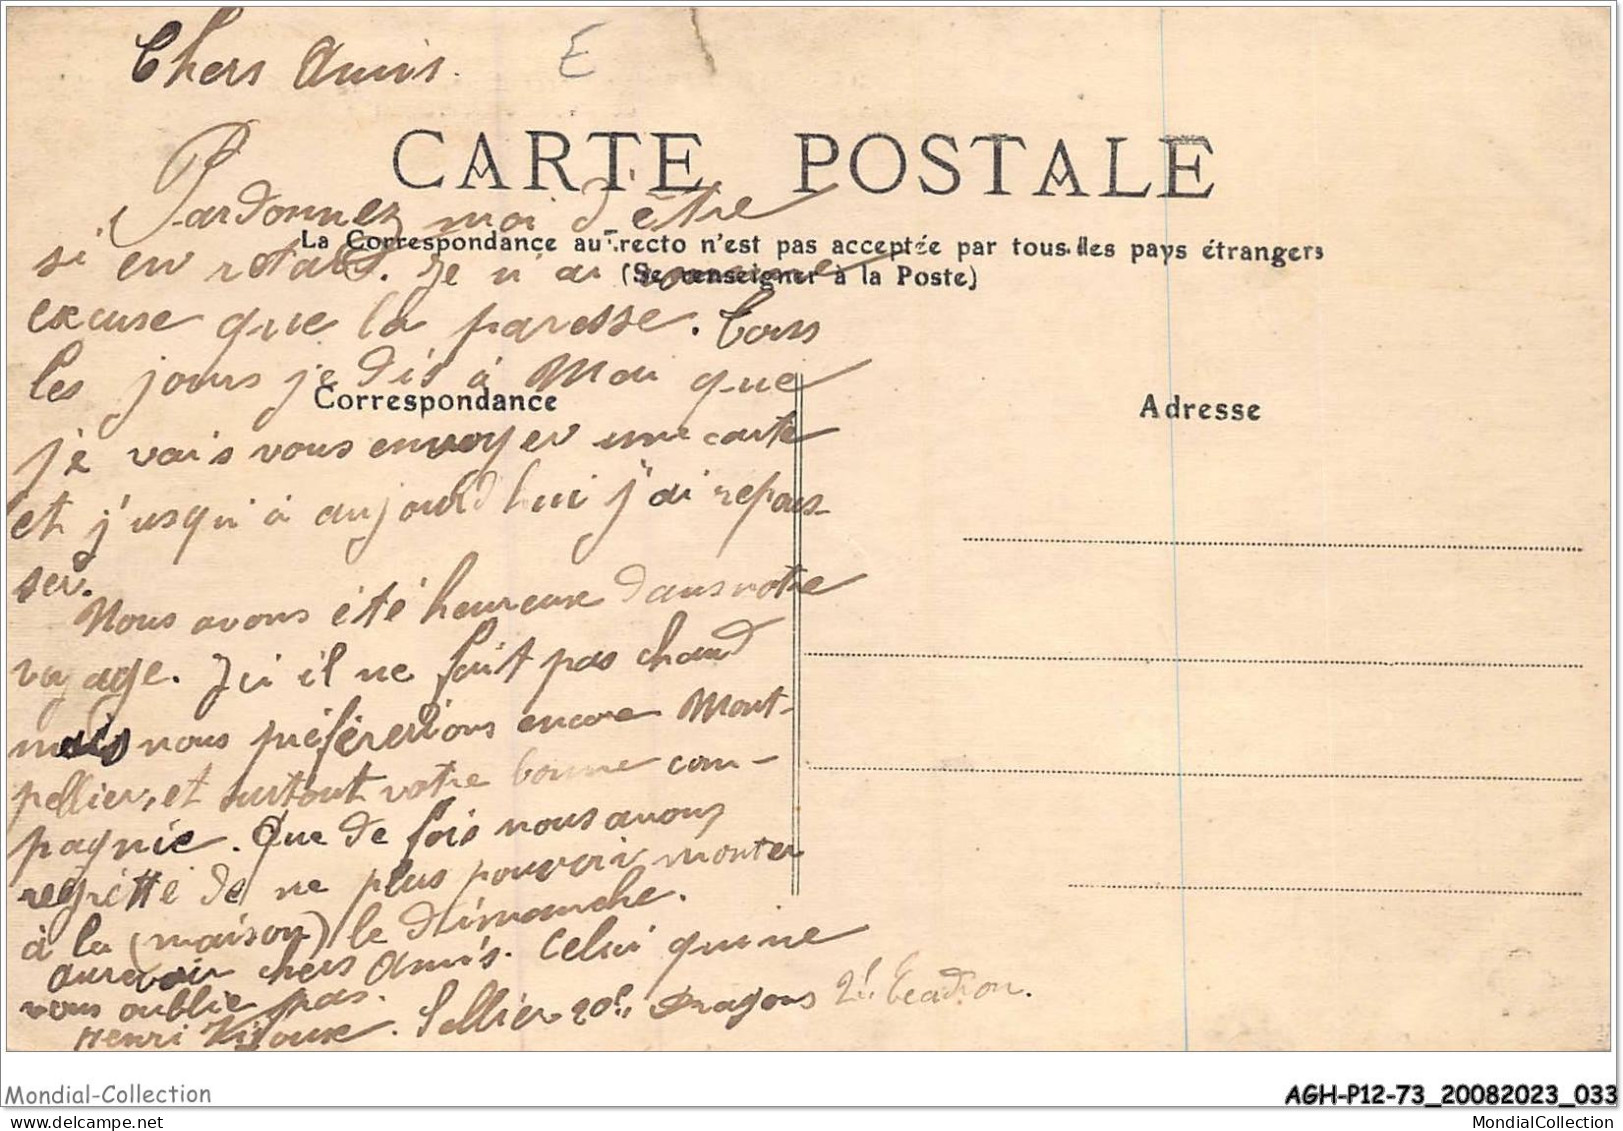 Chers Amis.
E
CARTE POSTALE
Pardonnez moi d'être
La Correspondance au recto n'est pas acceptée par tous les pays étrangers
si en retard. Je n'ai comme
(Se renseigner à la Poste)
excuse que la paresse. Tous
les jours je dis à Moi que
Correspondance
Adresse
je vais vous envoyer une carte
et j'usqu'à aujourd'hui j'ai repous-
ser.
Nous avons été heureux dans notre
voyage. Ici il ne fait pas chaud
mais nous préfèrerions encore Mont-
pellier, et surtout votre bonne com-
pagnie. Que de fois nous avons
regretté de ne plus pouvoir monter
à la (maison) le dimanche.
aurevoir chers Amis. Celui qui ne
vous oublie pas.
Henri Sellier 20e Dragons 2e Escadron.
Mondial-Collection
AGH-P12-73_20082023_033
MondialCollection